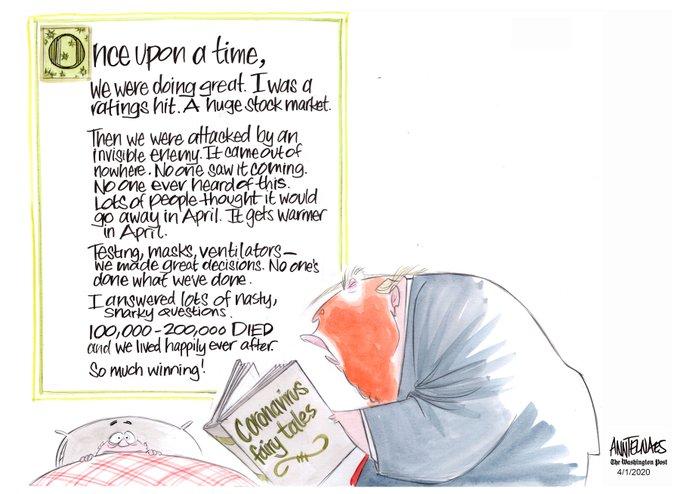 Once upon a time,
we were doing great. I was a
ratings hit. A huge stock market.
Then we were attacked by an
invisible enemy. It came out of
nowhere. No one saw it coming.
No one ever heard of this.
Lots of people thought it would
go away in April. It gets warmer
in April.
Testing, masks, ventilators—
we made great decisions. No one's
done what we've done.
I answered lots of nasty,
snarky questions.
100,000-200,000 DIED
and we lived happily ever after.
So much winning!
Coronavirus
fairy tales
ANNTELNAES
The Washington Post
4/1/2020